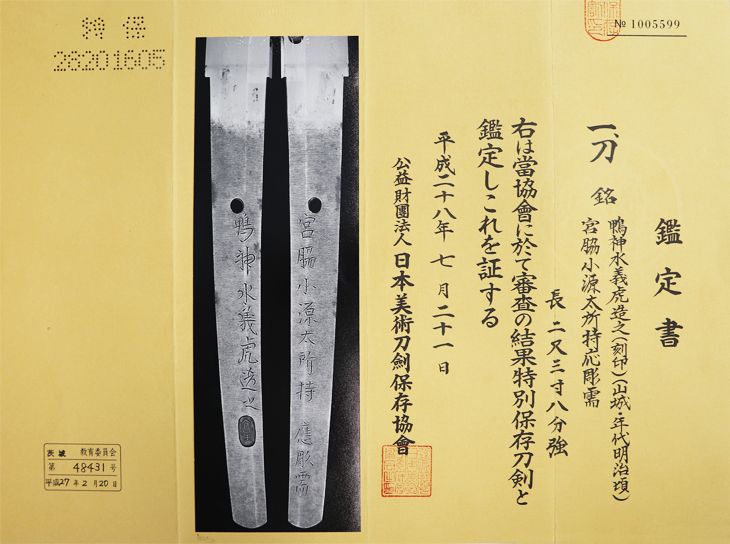 № 1005599
鑑定書
一、刀 銘 鴨神水義虎造之(刻印)(山城・年代明治頃)
宮脇小源太所持応彫需
長 二尺三寸八分強
右は當協會に於て審査の結果特別保存刀剣と
鑑定しこれを証する
平成二十八年 七月 二十一日
公益財團法人 日本美術刀劍保存協會
宮脇小源太所持 應彫需
鴨神水義虎造之
特保
28201605
茨城 教育委員会
第 48431 号
平成27年2月20日